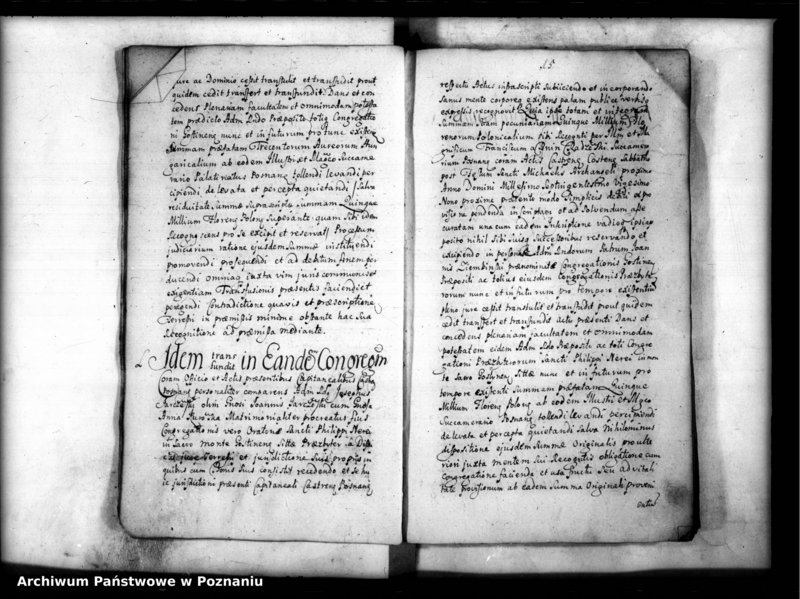 jure ac Dominio cessit transtulit et transfudit prout
quidem cedit transfert et transfundit. Dans et con
cedens plenariam facultatem et omnimodam potesta
tem praedicto Adm Rndo Praeposito totiq Congregatio
ni Gostinens nunc et in futurum pro tunc existen
Summam praefatam Trecentorum Aureorum Hun
garicalium ab eodem Illustri et Magco Succame
rario Palatinatus Posnan tollendi levandi per
cipiendi de levata et percepta quietandi. Salva
residuitate Summae suprascriptae Summam Quinque
Millium Floren Polon Superante quam Sibi idem
Recognoscens pro se excipit et reservat. Processum
judiciarium ratione ejusdem Summae instituendi
promovendi prosequendi et ad debitum finem de
ducendi omniaq juxta vim juris communis et
exigentiam Transfusionis praesentis faciendi et
peragendi Contradictione quavis et praescriptione
Terrestri in praemissis minime obstante hac Sua
Recognitione ad praemissa mediante.
Idem trans
fundit in Eandem Congreom
Coram Officio et Actis praesentibus Capitanealibus Castr
Posnan personaliter comparens Adm Rdus Josephus
olim Gnosi Joannis cum Gnosa
Anna Matrimonialiter procreatus filius
Congregationis vero Oratorii Sancti Philippi Nerei
in Sacro monte Gostinens Sittae Praesbyter a
jure Terrestri et jurisdictione Suis propriis in
quibus cum Bonis Suis consistit recedendo et se hu
ic jurisdictioni praesenti Capitaneali Castrens Posnans
15
respectu Actus infrascripti Subjiciendo et incorporando
Sanus mente corporeq existens palam publice verbis
expressis recognovit Quia ipse totam et integram
Summam Suam pecuniariam Quinque Millium Flo
renorum Polonicalium sibi Recognoti per Illrm et Ma
gnificum Franciscum a Succamera
rium Posnan coram Actis Castren Costen Sabbatho
post Festum Sancti Michaelis Archangeli proximo
Anno Domini Millesimo Septingentesimo Vigesimo
Nono proxime praeterito modo Simplicis debiti ex pro
viso non pendenda inscriptam et ad Solvendum asse
curatam una cum eadem Inscriptione vadioq ipsius
posito nihil Sibi Suisq Successoribus reservando et
excipiendo in personas Adm Rndorum Patrum Joan
nis praenominatae Congregationis Gostinen
Praepositi ac totius ejusdem Congregationis Praesbyte
rorum nunc et in futurum pro tempore existentium
pleno jure cessit transtulit et transfudit prout quidem
cedit transfert et transfundit Actu praesenti Dans et
concedens plenariam facultatem et omnimodam
potestatem eidem Adm Rdo Praeposito ac toti Congre
gationi Praesbyterorum Sancti Philippi Nerei in mon
te Sacro Gostynens Sittae nunc et in futurum pro
tempore existenti Summam praefatam Quinque
Millium Floren Polon ab eodem Illustri et Mgco
Succamerario Posnans tollendi levandi percipiendi
de levata et percepta quietandi Salva Nihilominus
dispositione ejusdem Summae Originalis pro ulte
riori juxta mentem Sui Recogntis obligatione cum
Congregatione facienda et usu fructu Seu ad vitali
tate provisionum ab eadem Summa Originali proveni
entium
Archiwum Państwowe w Poznaniu